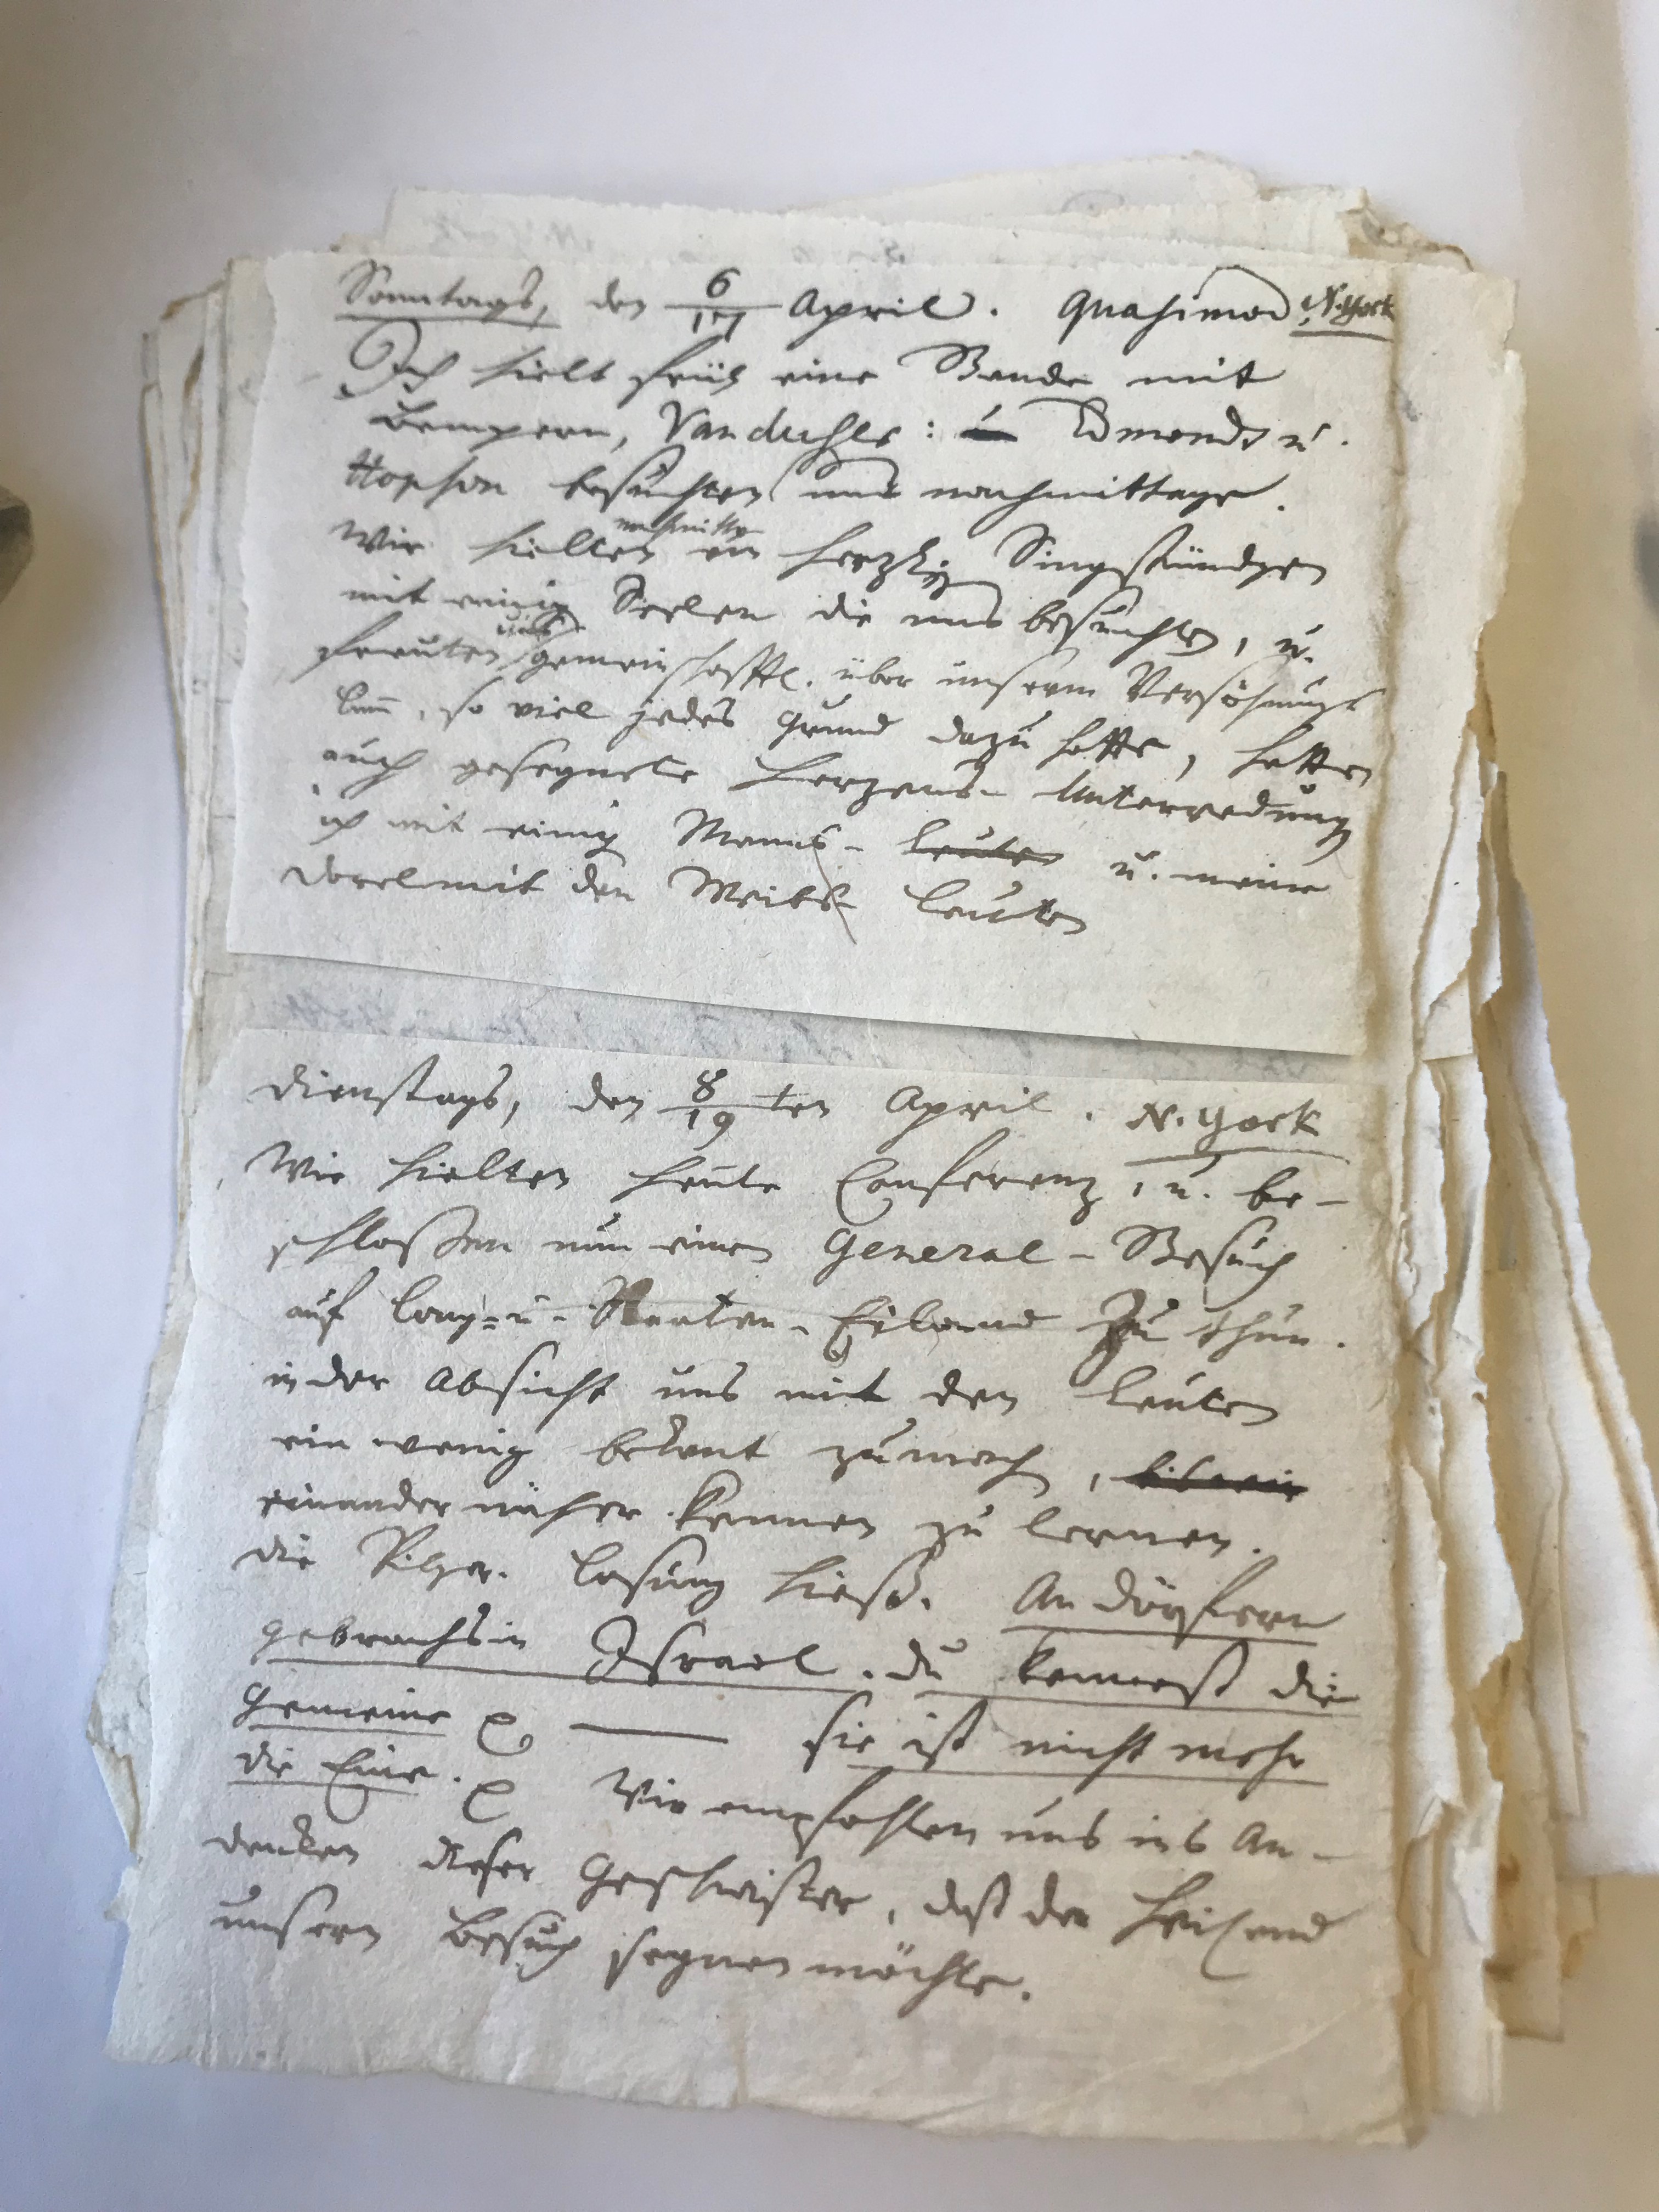 Sonntags, den 6/17 April. Quasimod N. York
Ich hielt früh eine Bande mit
Bempern, Vanduhls: u Edmonds u.
Hopson besuchten uns nachmittage.
Wir hielten nachmittg ein herzlig Singstündgen
mit einig Seelen die uns besuchten, u.
freuten uns gemeinschafftl. über unserm Versöhnungs
Lam̄, so viel jedes Grund dazu hatte, hatten
auch gesegnete Herzens-Unterredung
ich mit einig Manns-leuten u. meine
Dorel mit den Weibs-Leuten
Dienstags, den 8/19 ten April. N. York
Wir hielten heute Conferenz, u. be-
schlossen nun einen General-Besuch
auf Long-u-Staaten-Eiland zu thun.
in der Absicht uns mit den Leuten
ein wenig bekant zu mach,
einander näher kennen zu lernen.
die Pilger-Losung hieß. An Dörfern
gebrachs in Israel. du kennest die
Gemeine p. — sie ist nicht mehr
die Eine. p Wir empfohlen uns ins An-
denken dieser Geschwister, daß der Heiland
unsern Besuch segnen möchte.